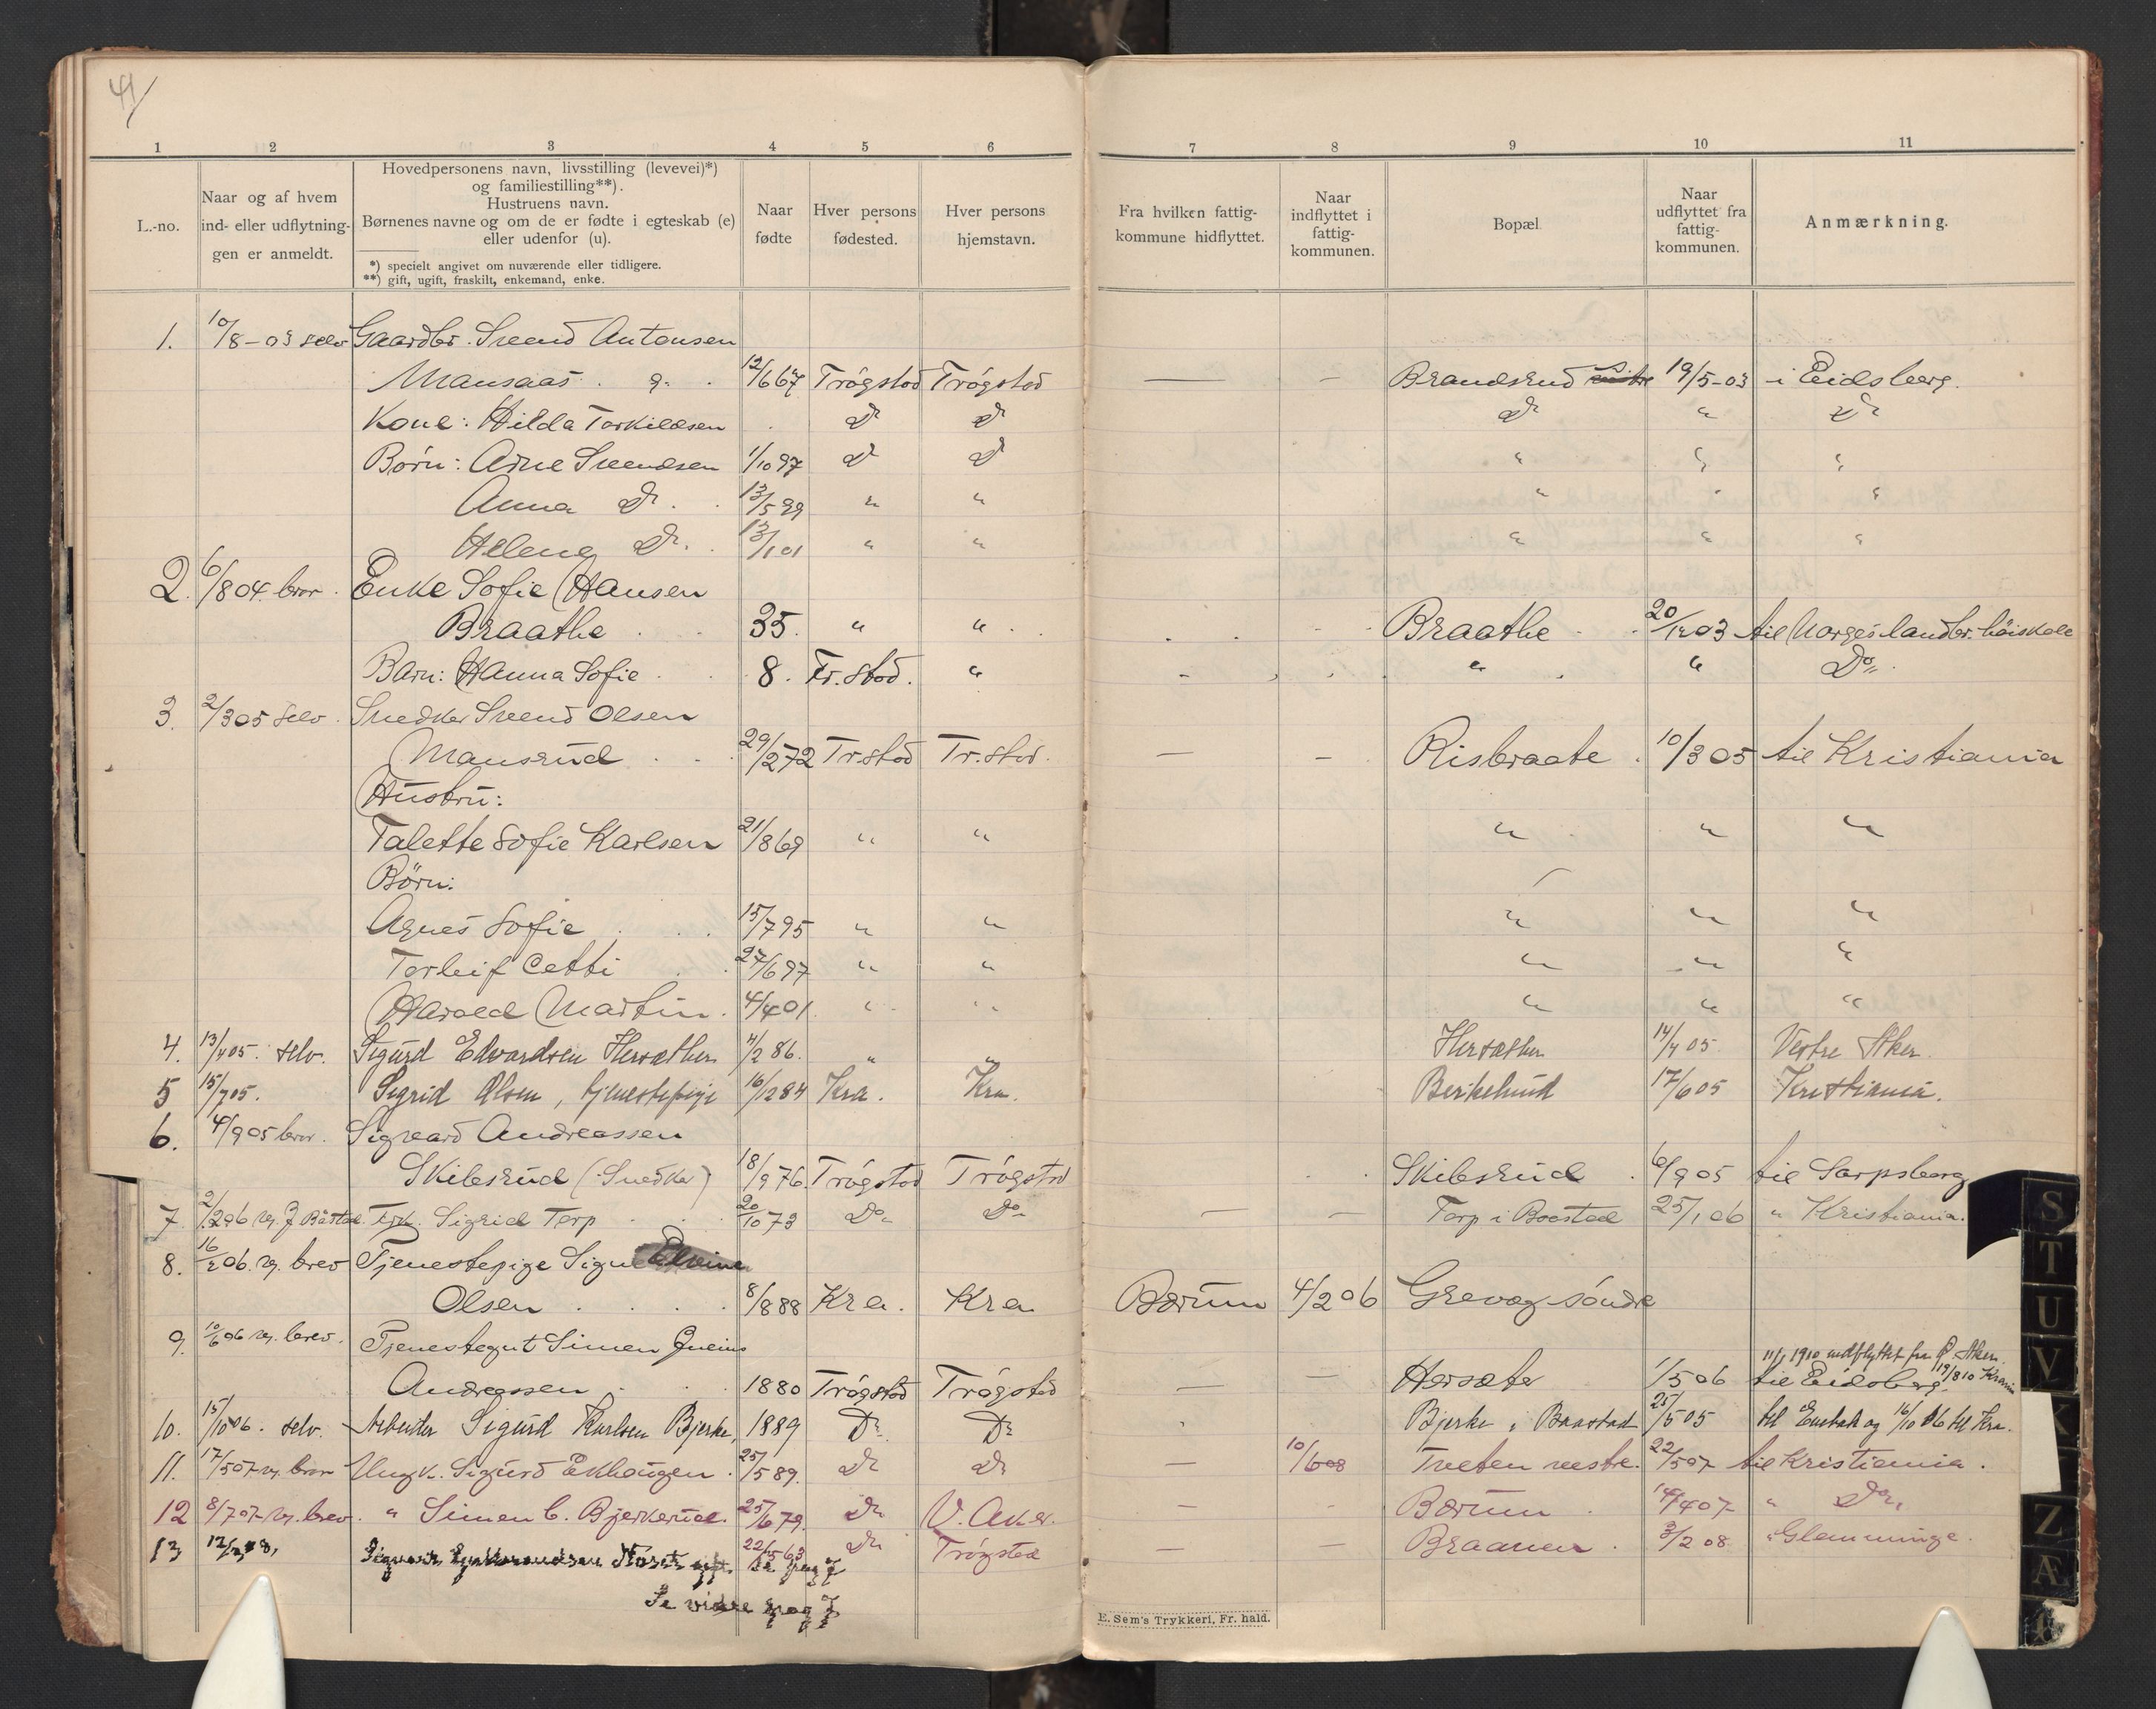 41/
1 2 3 4 5 6 7 8 9 10 11
L.-no.
Naar og af hvem
ind- eller udflytnin-
gen er anmeldt.
Hovedpersonens navn, livsstilling (levevei)*)
og familiestilling**).
Hustruens navn.
Børnenes navne og om de er fødte i egteskab (e)
eller udenfor (u).
*) specielt angivet om nuværende eller tidligere.
**) gift, ugift, fraskilt, enkemand, enke.
Naar
fødte
Hver persons
fødested.
Hver persons
hjemstavn.
Fra hvilken fattig-
kommune hidflyttet.
Naar
indflyttet i
fattig-
kommunen.
Bopæl
Naar
udflyttet fra
fattig-
kommunen.
Anmærkning.
1. 10/8-03 selv Gaardbr. Svend Antonsen
Mansaas . g. 12/6 67 Trøgstad Trøgstad — — Brandsrud 19/5-03 i Eidsberg.
Kone: Hilda Torkildsen Do Do Do " Do
Børn: Arne Svendsen 1/10 97 Do Do " " "
Anna Do. 13/5 99 " " " " "
Helene Do. 13/1 01 " " " " "
2. 6/8 04. brev. Enke Sofie Hansen
Braathe 35. " " Braathe 20/12 03 til Norges landbr. høiskole
Barn: Hanna Sofie 8. Fr.stad. " " " Do
3. 2/3 05 selv. Snedker Svend Olsen
Mansrud 29/2 72 Tr.stad Tr.stad. — — Risbraate 10/3 05 til Kristiania
Hustru:
Talette Sofie Karlsen 21/8 69 " " " " "
Børn:
Agnes Sofie 15/7 95 " " " " "
Torleif Cetti 27/6 97 " " " " "
Harald Martin. 4/4 01. " " " " "
4. 13/4 05. selv. Sigurd Edvardsen Hersæther 4/2 86. " " Hersæther 14/4 05 Vestre Aker.
5 15/7 05. Sigrid Olsen, tjenestepige 16/12 84 Kra. Kra. Berkelund 17/6 05 Kristiania.
6. 4/9 05 brev. Sigvard Andreassen
Skibsrud (Snedker) 18/9 76. Trøgstad Trøgstad Skibsrud 6/9 05 til Sarpsborg
7 2/2 06 Sigrid Torp 20/10 73 Do Do — — Torp i Baastad 25/1 06 " Kristiania.
8. 16/2 06. brev Tjenestepige Signe
Olsen 8/8 88 Kra. Kra Bærum 4/2 06 Grevog søndre
9. 10/6 06 brev. Tjenestegut Simen
Andreassen 1880 Trøgstad Trøgstad — — Hersæter 1/5 06 til Eidsberg.
1910 indflyttet fra Aker. 19/8 10
10. 15/10 06. selv. Arbeider Sigurd Karlsen Bjerke, 1889 Do Do Bjerke i Baastad 25/5 05 til Enebak og 16/10 06 til Kra.
11. 17/5 07 brev Ungk. Sigurd Ekhaugen. 25/5 89. Do Do — 10/6 08 Tveten vestre. 22/5 07 til Kristiania.
12 8/7 07 brev. " Simen C. Bjerkerud. 25/6 79. Do V. Aker. — Bærum 14/4 07 " Do
13 12/2 08, Sigvart 22/5 63 Do Trøgstad — — Braanen 3/2 08 " Glemminge.
Se vidre pag 7
E. Sem's Trykkeri, Fr. hald.
S
T
U
V
Z
Æ